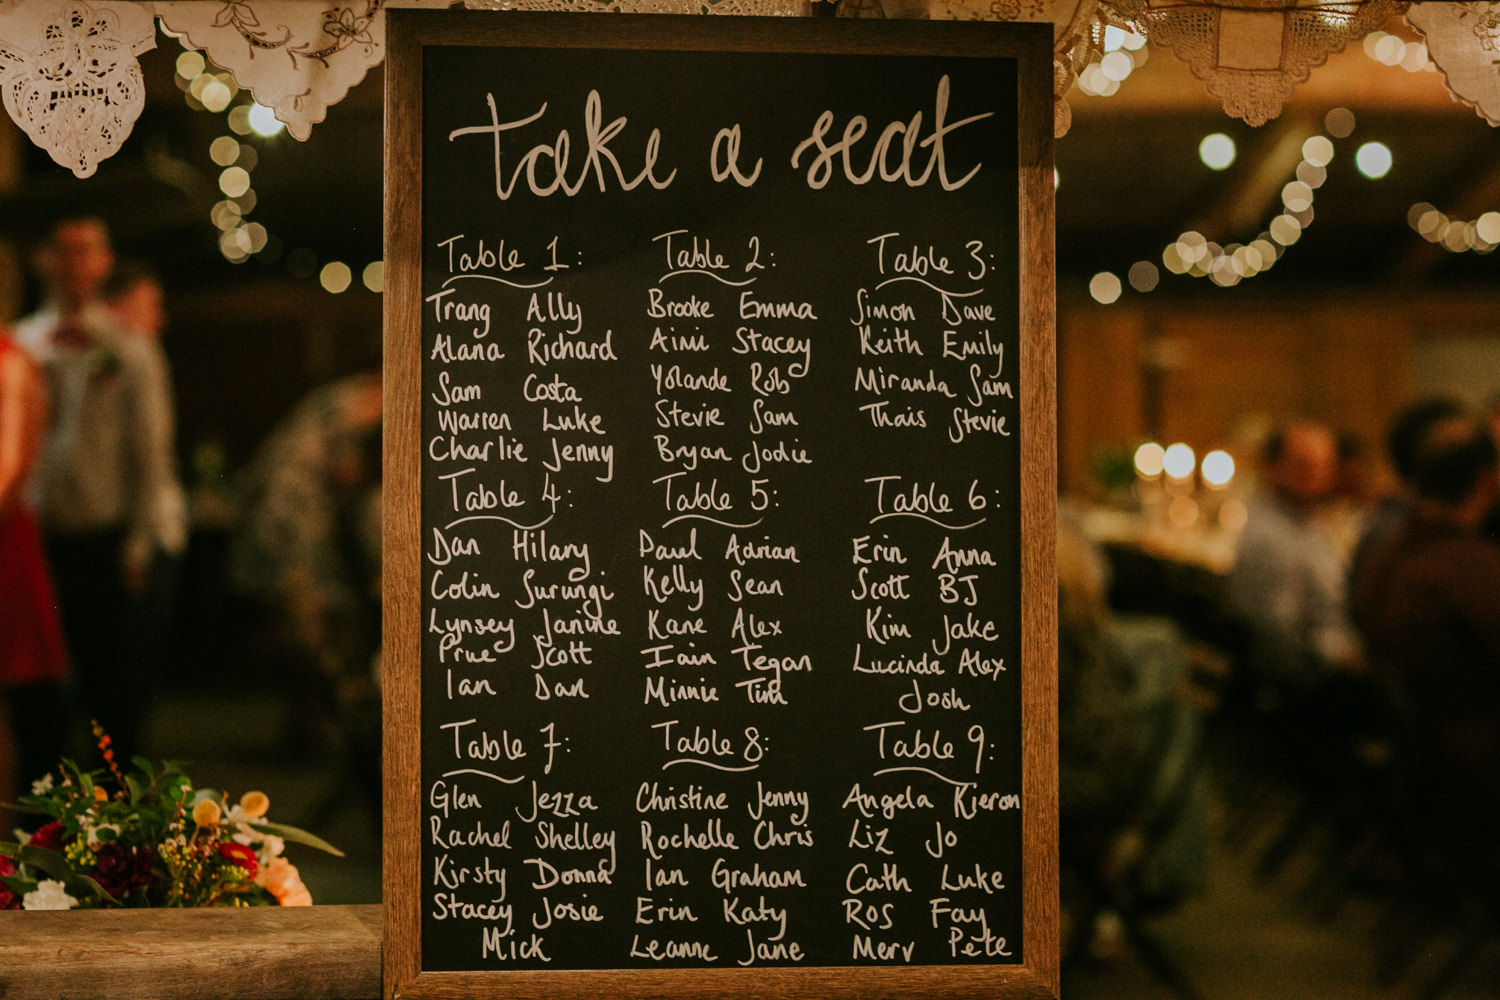 take a seat
Table 1:
Trang Ally
Alana Richard
Sam Costa
Warren Luke
Charlie Jenny
Table 2:
Brooke Emma
Aimi Stacey
Yolande Rob
Stevie Sam
Bryan Jodie
Table 3:
Simon Dave
Keith Emily
Miranda Sam
Thais Stevie
Table 4:
Dan Hilary
Colin Surungi
Lynsey Janine
Prue Scott
Ian Dan
Table 5:
Paul Adrian
Kelly Sean
Kane Alex
Iain Tegan
Minnie Tim
Table 6:
Erin Anna
Scott BJ
Kim Jake
Lucinda Alex
Josh
Table 7:
Glen Jezza
Rachel Shelley
Kirsty Donna
Stacey Josie
Mick
Table 8:
Christine Jenny
Rochelle Chris
Ian Graham
Erin Katy
Leanne Jane
Table 9:
Angela Kieron
Liz Jo
Cath Luke
Ros Fay
Merv Pete